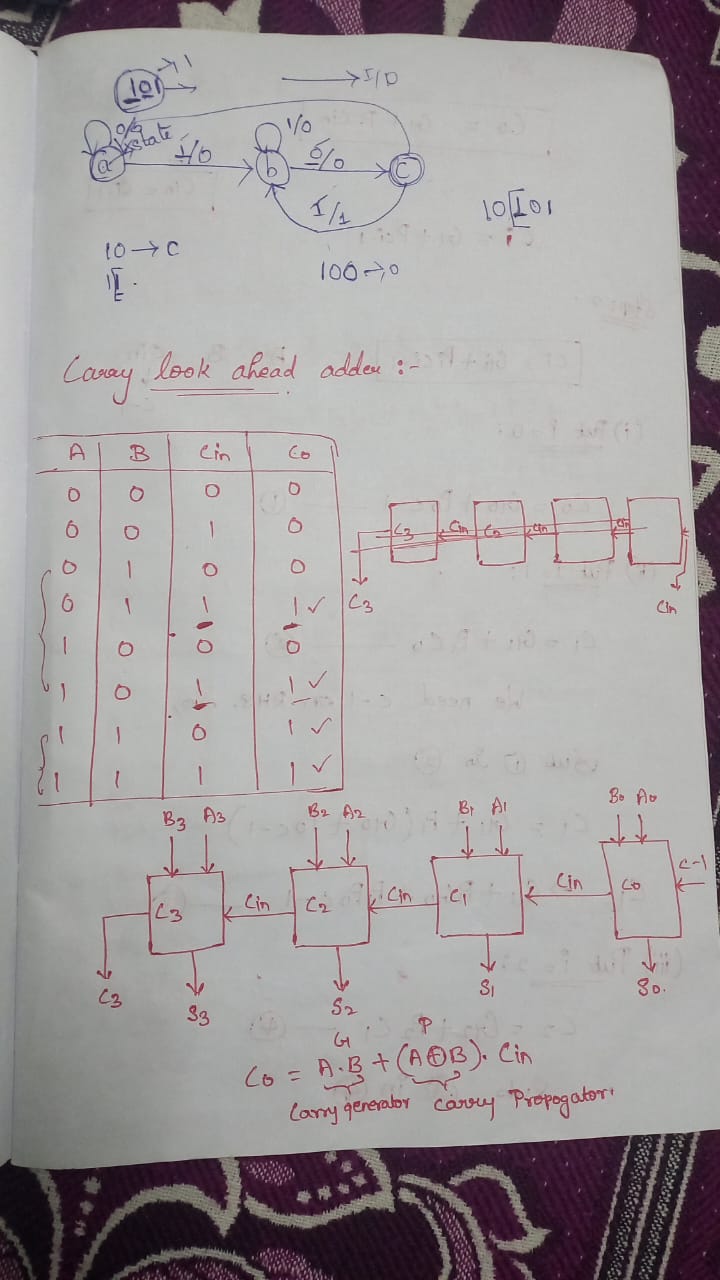 101 → 1
→ I/O
0/0
state
1/0
1/0
0/0
a
b
c
1/1
10 → c
10101
100 → 0
Carry look ahead adder :-
A B Cin Co
0 0 0 0
0 0 1 0
0 1 0 0
0 1 1 1 ✓
1 0 0 0
1 0 1 1 ✓
1 1 0 1 ✓
1 1 1 1 ✓
C3 Cin C2 Cin Cin
C3
Cin
B3 A3 B2 A2 B1 A1 B0 A0
C-1
C3 Cin C2 Cin C1 Cin C0
C3
S3 S2 S1 S0.
G P
Co = A.B + (A⊕B). Cin
Carry generator Carry Propogator.